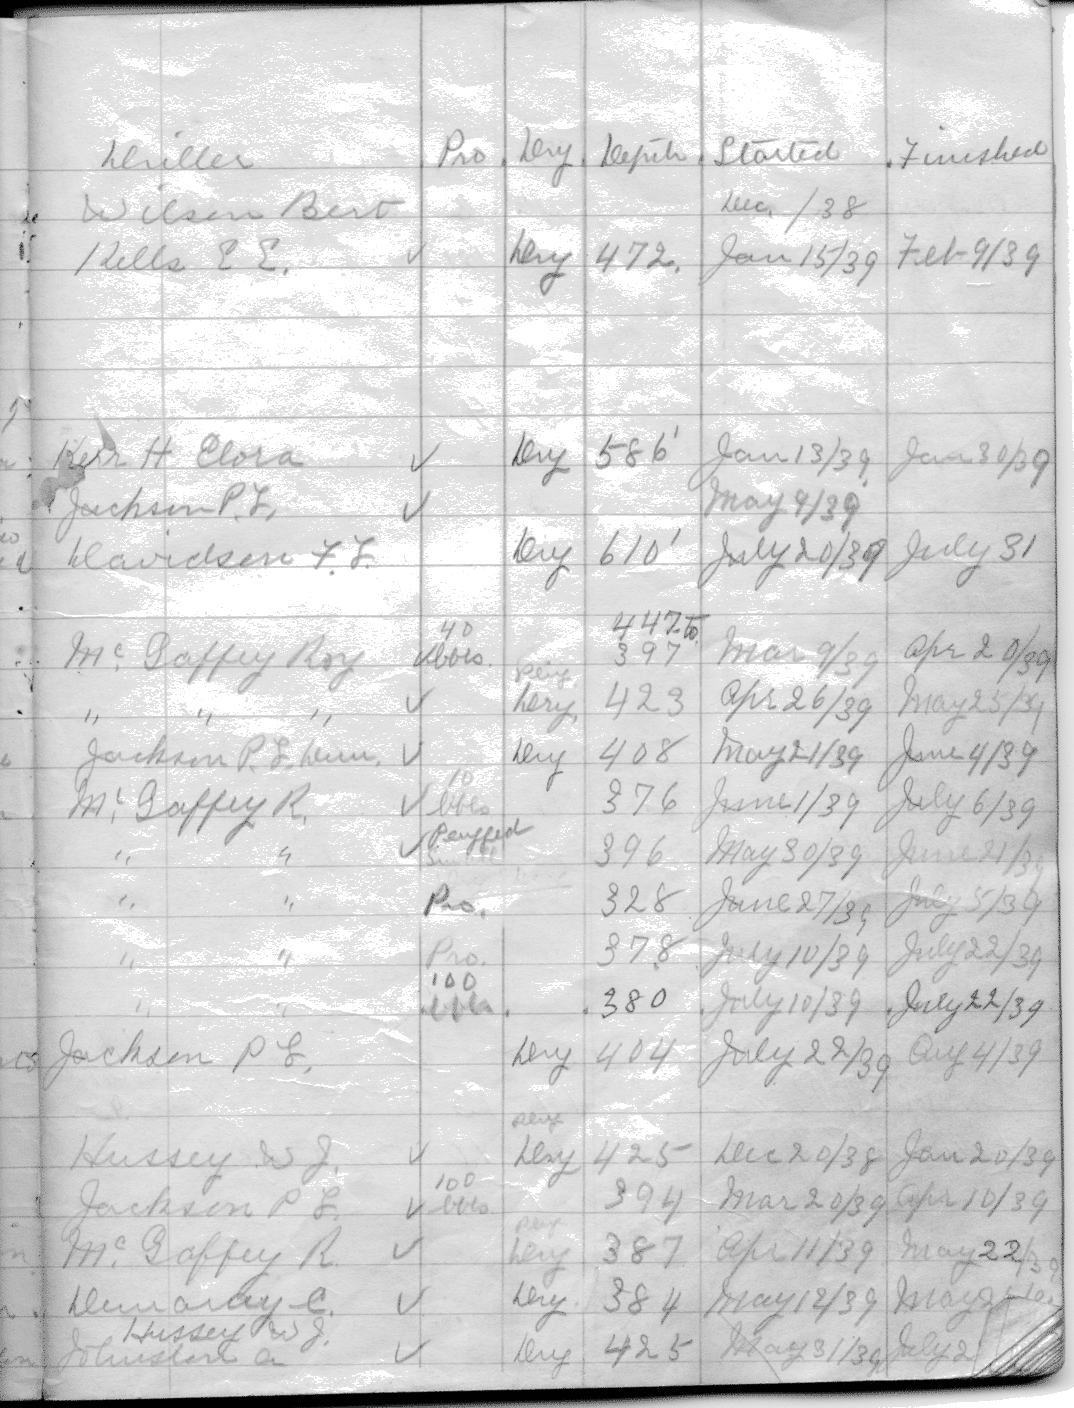 Driller Pro. Dry. Depth. Started .Finished
Wilson Bert Dec. /38
Kells E E. ✓ Dry 472. Jan 15/39 Feb 9/39
Kerr H Elora ✓ Dry 586' Jan 13/39 Jan 30/39
Jackson P. L. ✓ May 9/39
Davidson F. L. Dry 610' July 20/39 July 31
40 447 to
Mc Gaffey Roy ✓ bbls. 397 Mar 9/39 Apr 20/39
" " " ✓ Dry, 423 Apr 26/39 May 25/39
Jackson P. L. ✓ Dry 408 May 21/39 June 4/39
10
Mc Gaffey R. ✓ bbls 376 June 1/39 July 6/39
" " ✓ 396 May 30/39 June 21/39
" " Pro. 328 June 27/39 July 5/39
" " Pro. 378 July 10/39 July 22/39
100
" " 380 July 10/39 July 22/39
Jackson P L. Dry 404 July 22/39 Aug 4/39
Hussey W J. ✓ Dry 425 Dec 20/38 Jan 20/39
100
Jackson P L. ✓ bbls 394 Mar 20/39 Apr 10/39
Mc Gaffey R ✓ Dry 387 Apr 11/39 May 22/39
C. ✓ Dry. 384 May 12/39 May
Hussey W J.
Johnston A ✓ Dry 425 May 31/39 July